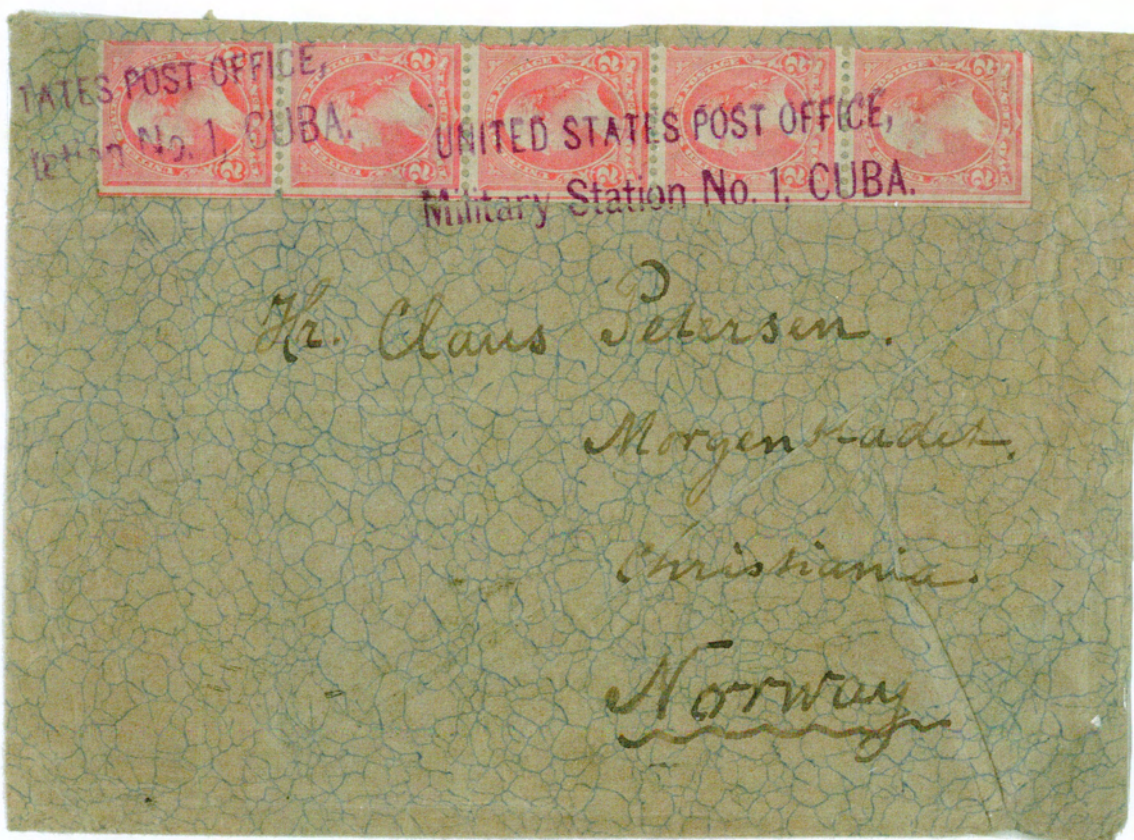 TATES POST OFFICE,
No. 1, CUBA.
UNITED STATES POST OFFICE,
Military Station No. 1, CUBA.
Hr. Claus Petersen.
Morgenbladet.
Christiania.
Norway